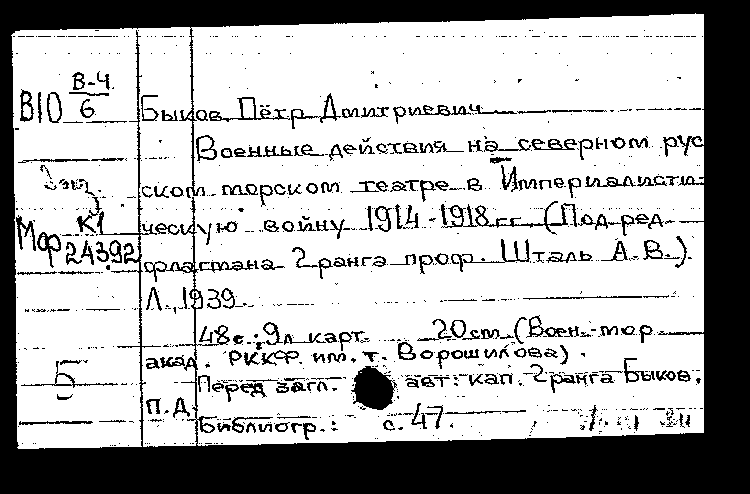 В-4
В10 6
Быков, Пётр Дмитриевич
Военные действия на северном рус
ском морском театре в Империалисти-
ческую войну 1914-1918 гг. (Под ред.
Мф К1
24392
флагмана 2 ранга проф. Шталь А.В.)
Л., 1939.
48 с.; 9 л карт. 20 см (Воен.-мор.
акад. РККФ им. т. Ворошилова).
Перед загл. авт: кап. 2 ранга Быков,
П.Д.
Библиогр.: с. 47.
Б